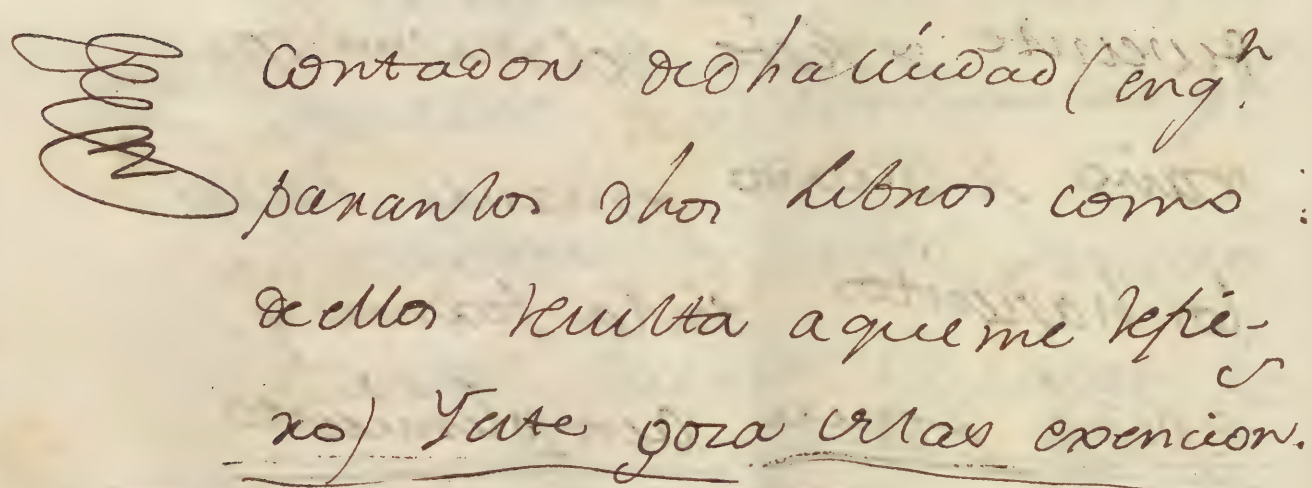 Contador dedha Ciudad (enq.n
pararan los dhos Libros como :
de ellos resulta a que me refie-
ro) Y este goza de las exencion.